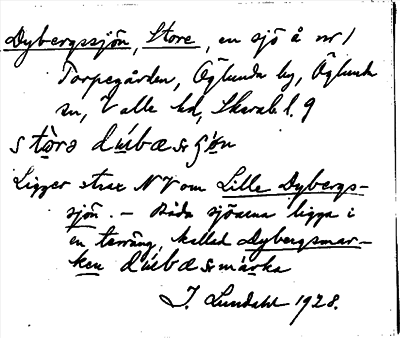 Dybergssjön, Store, en sjö å nr 1
Torpegården, Öglunda by, Öglunda
sn, Valle hd, Skarab. l. 9
Ligger strax NV om Lille Dybergs-
sjön. — Båda sjöarna ligga i
en terräng, kallad Dybergsmar-
ken
J. Lundahl 1928.